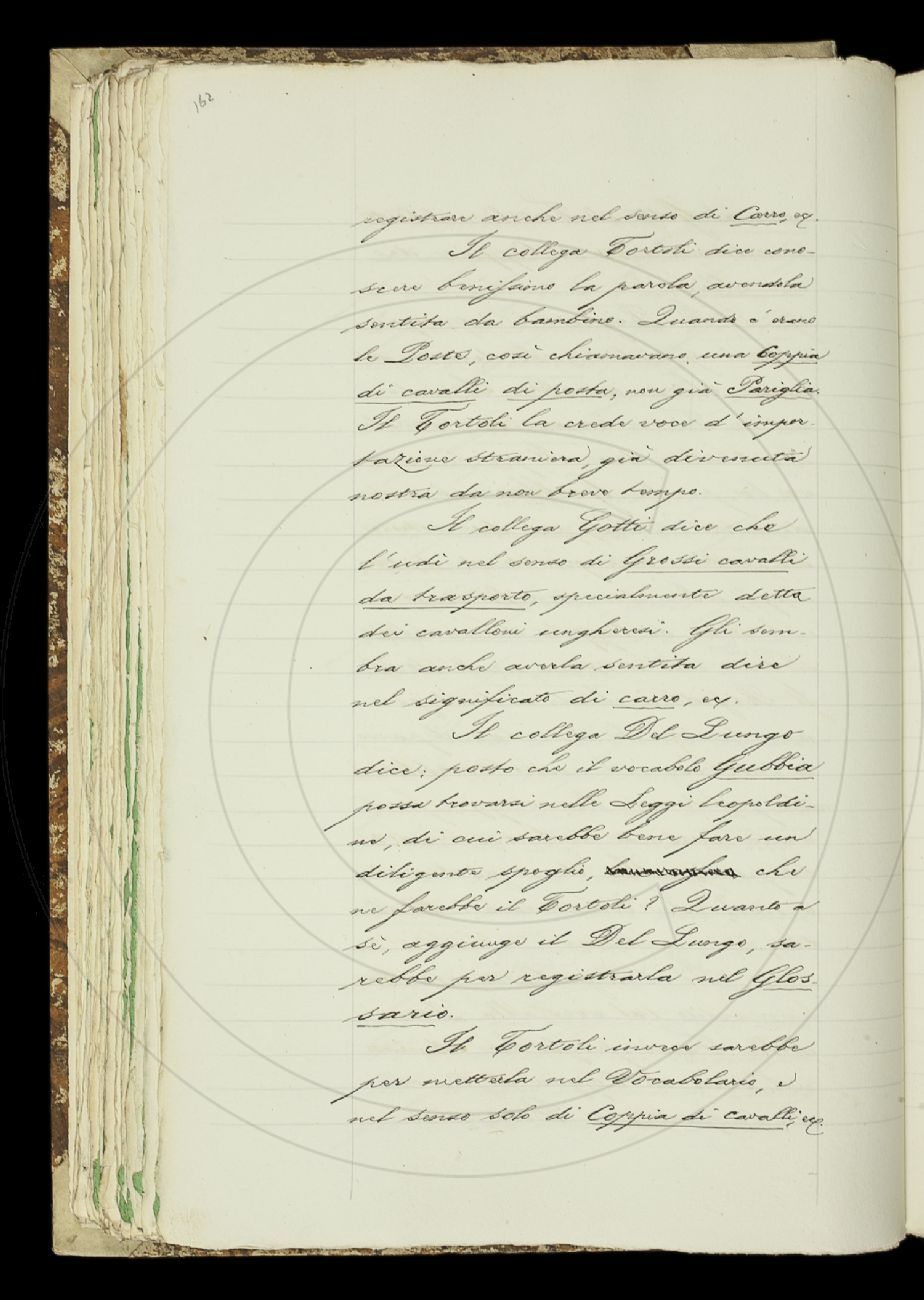 162
registrare anche nel senso di Carro, ec.
Il collega Tortoli dice cono-
scere benissimo la parola, avendola
sentita da bambino. Quando c'erano
le Poste, così chiamavano una Coppia
di cavalli di posta, non già Pariglia.
Il Tortoli la crede voce d'impor-
tazione straniera, già divenuta
nostra da non breve tempo.
Il collega Gotti dice che
l'udì nel senso di Grossi cavalli
da trasporto, specialmente detta
dei cavalloni ungheresi. Gli sem-
bra anche averla sentita dire
nel significato di carro, ec.
Il collega Del Lungo
dice: posto che il vocabolo Gubbia
possa trovarsi nelle Leggi leopoldi-
ne, di cui sarebbe bene fare un
diligente spoglio, che
ne farebbe il Tortoli? Quanto a
sè, aggiunge il Del Lungo, sa-
rebbe per registrarla nel Glos-
sario.
Il Tortoli invece sarebbe
per metterla nel Vocabolario, e
nel senso solo di Coppia di cavalli, ec.